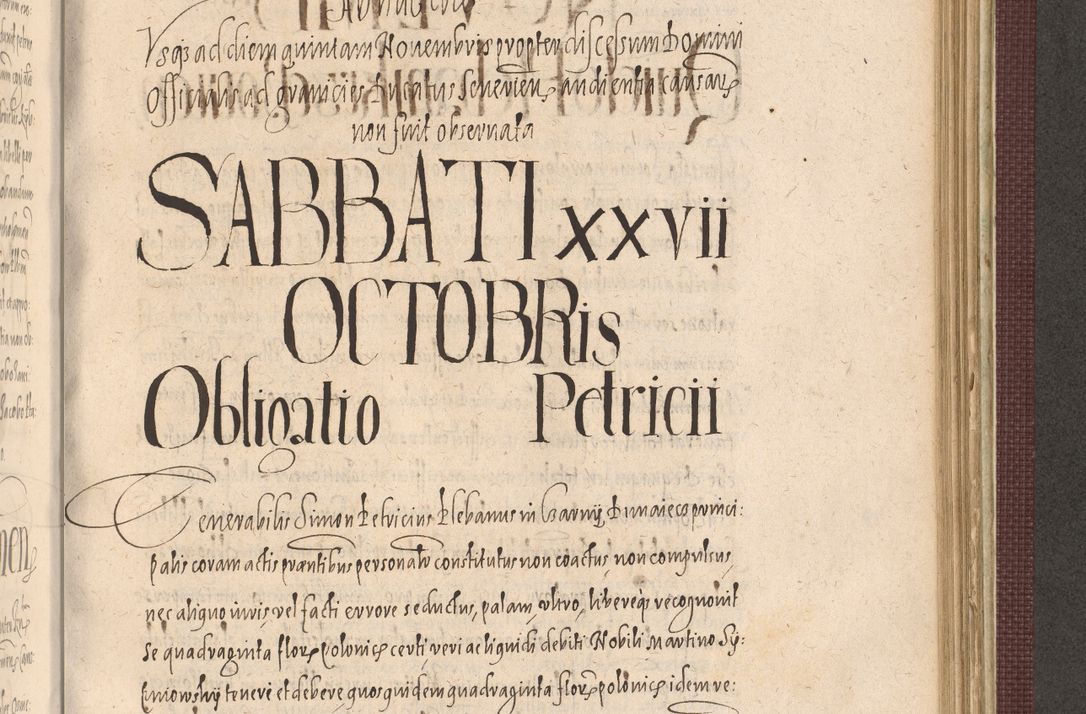 Vsqȝ ad diem quintam Novembris propter discessum Domini
Officialis ad granicies Ducatus Severien̄, audientia causarꝝ
non fuit observata
SABBATI xxvii
OCTOBRis
Obligatio Petricii
Venerabilis Simon Petricius Plebanus in Czarnÿ Dunaiecz princi:
palis coram actis præntibus personalr̄ constitutus non coactus, non compulsus,
nec aliquo iuris, vel facti errore seductus, palam, vltro, libereqȝ recognovit
Se quadraginta florꝝ polonicꝝ certi veri ac liquidi debiti Nobili Martino Sÿ:
teneri et debere quosquidem quadraginta florꝝ polonicꝝ idem re: